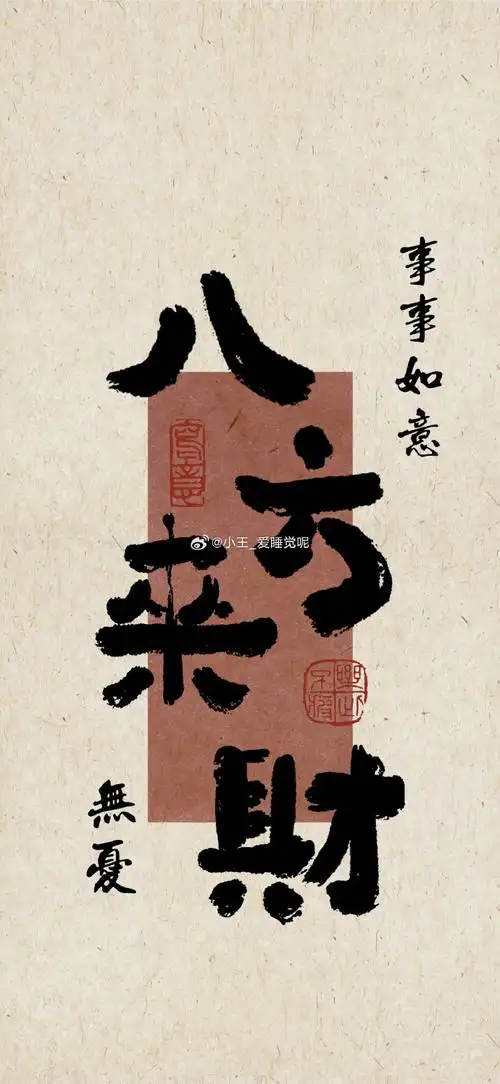 事事如意
八方来財
@小王_爱睡觉呢
無憂